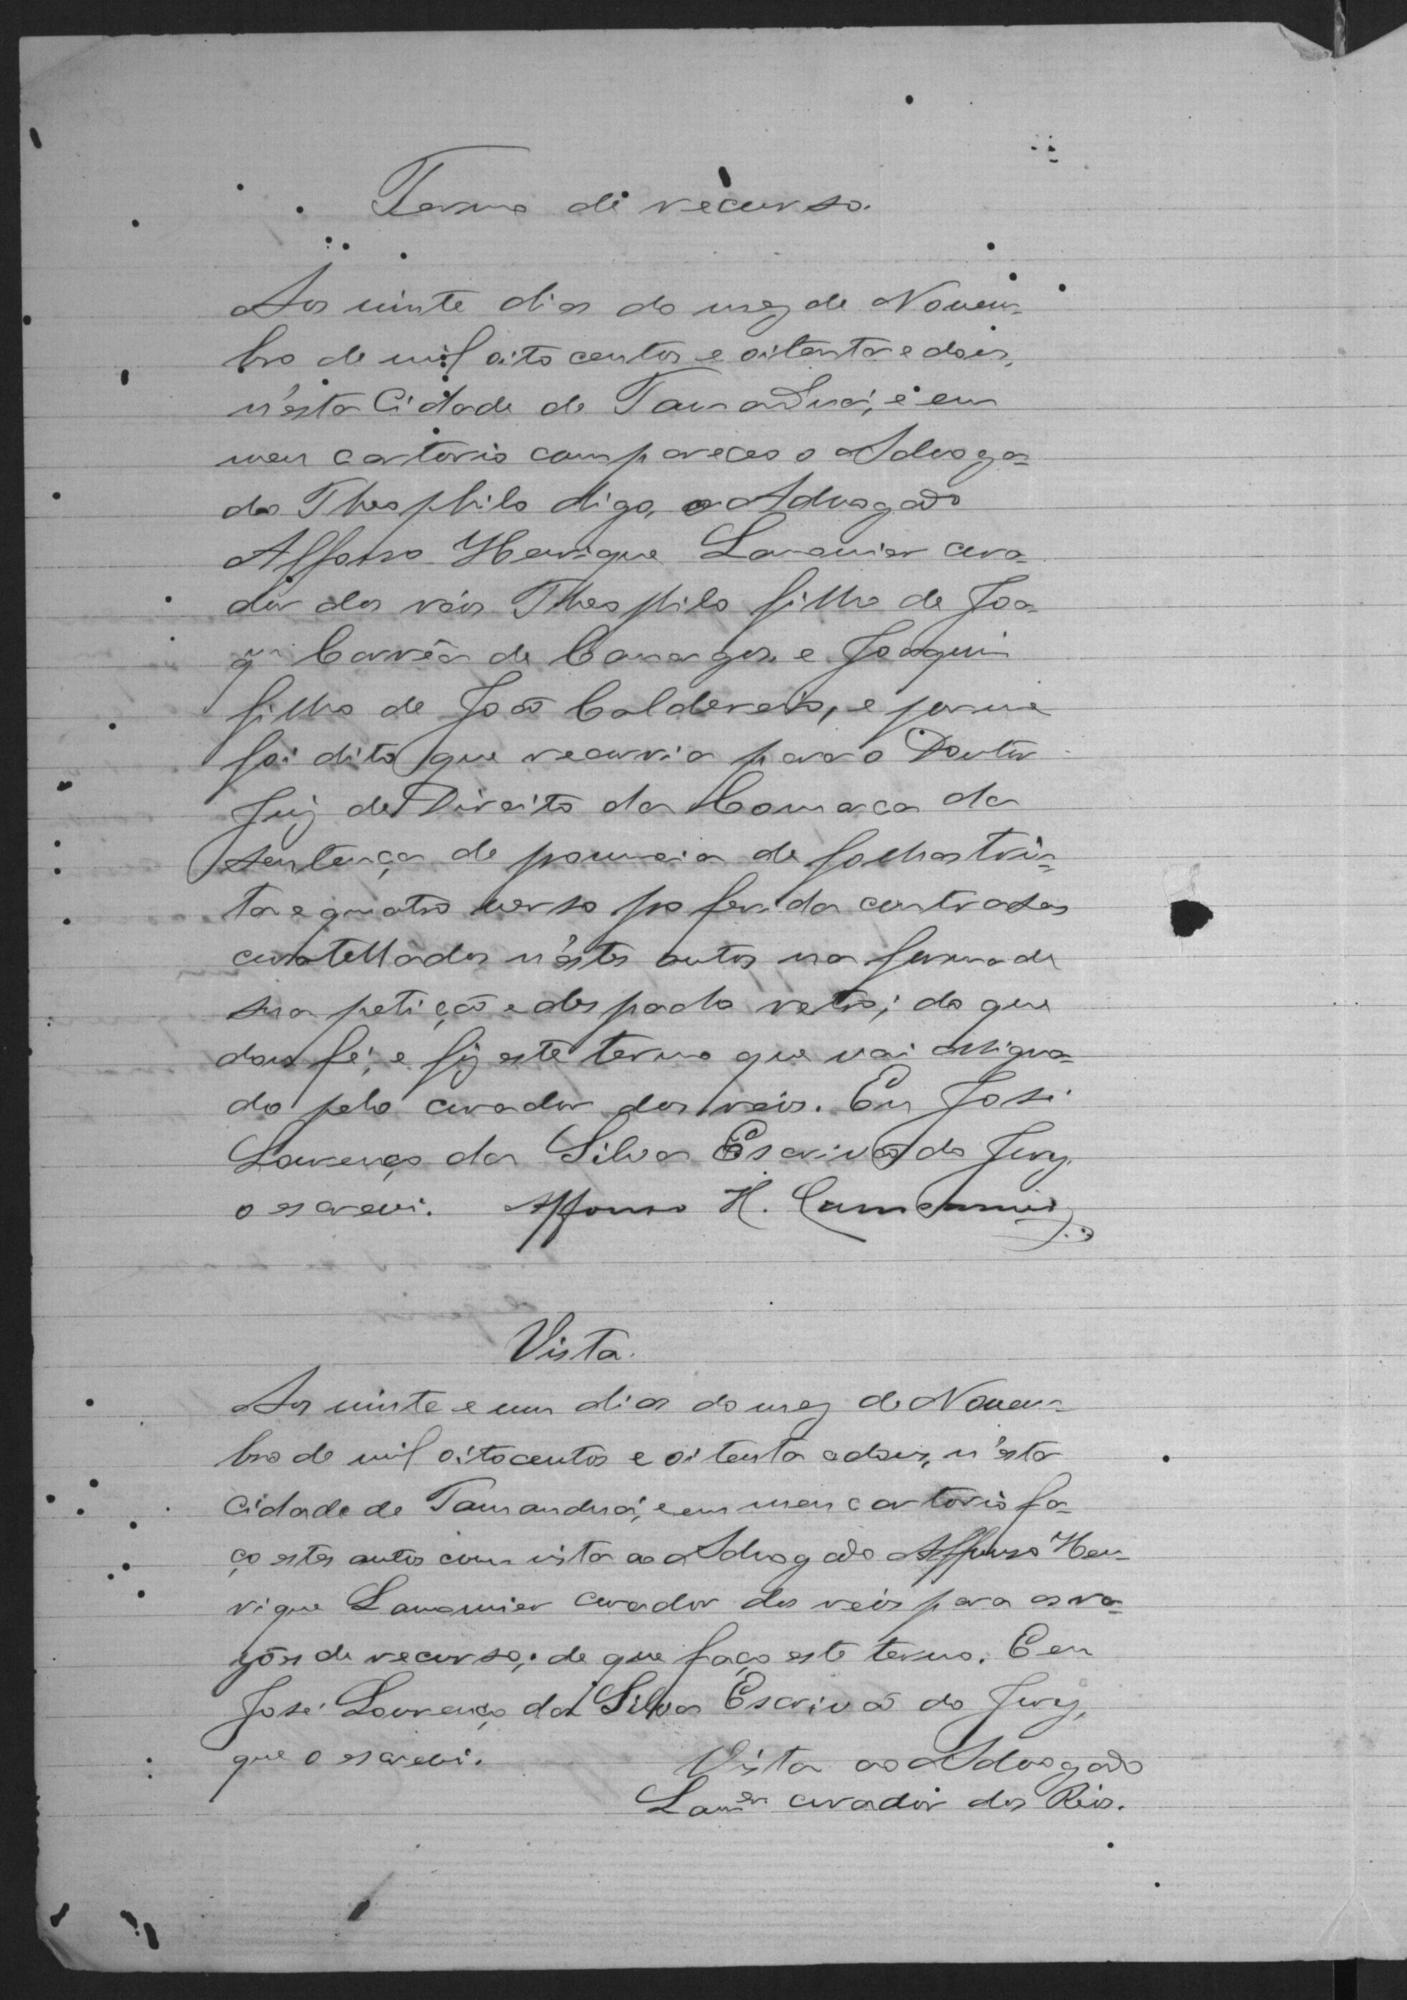 Termo de recurso.
Aos vinte dias do mez de Novem-
bro de mil oito centos e oitenta e dois,
n'esta Cidade de Tamanduá, e em
meu cartorio compareceo o Advoga-
do Theophilo digo, o Advogado
Affonso Henrique Lamounier cura-
dor dos réos Theophilo filho de Joa
qm Corrêa de Camargos e Joaquim
filho de João Caldereiro, e por me
foi dito que recorria para o Doutor
Juiz de Direito da Comarca da
sentença de pronuncia de folhas trin-
ta e quatro verso proferida contra seus
curatellados n'estes autos na forma de
sua petição e despacho retro; do que
dou fé, e fiz este termo que vai assigna-
do pelo curador dos réos. Eu José
Lourenço da Silva Escrivão do Jury,
o escrevi. Affonso H. Lamounier
Vista.
Aos vinte e um dias do mez de Novem-
bro de mil oitocentos e oitenta e dois, n'esta
cidade de Tamanduá, e em meu cartorio fa-
ço estes autos com vista ao Advogado Affonso Hen-
rique Lamounier curador dos réos para as ra-
zões de recurso; de que faço este termo. E eu
José Lourenço da Silva Escrivão do Jury,
que o escrevi. Vista ao Advogado
Lamer curador dos Réos.